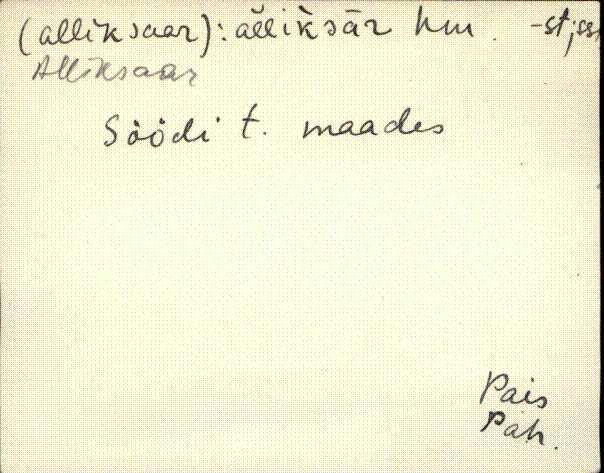 (alliksaar): ălliksār hm. -st; ss,
Alliksaar
Söödi t. maades
Pais
Pah.